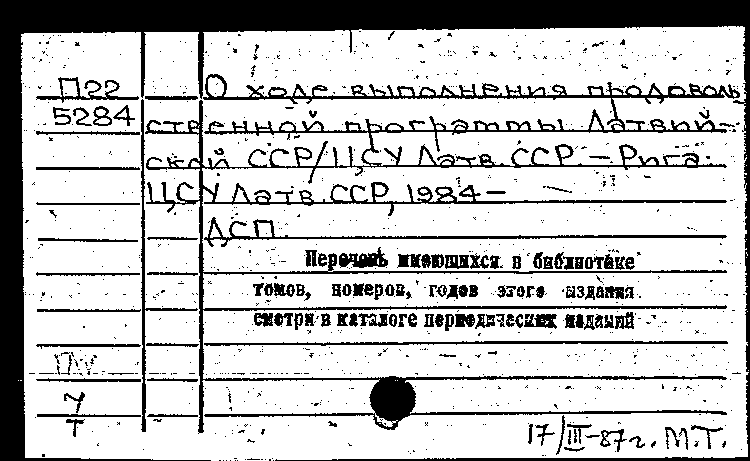 П22 О ходе выполнения продоволь
5284 ственной программы Латвий-
ской ССР/ЦСУ Латв. ССР. – Рига:
ЦСУ Латв. ССР, 1984 –
ДСП.
Перечень имеющихся в библиотеке
томов, номеров, годов этого издания
смотри в каталоге периодических изданий
У
Т
17/III-87г. М.Т.